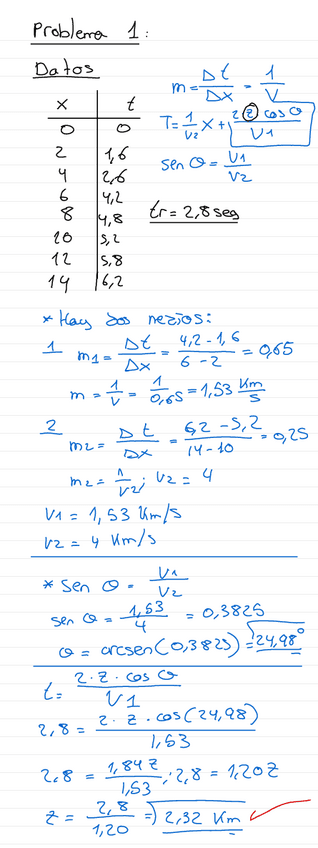 Problema 1:
Datos
x t
0 0
2 1,6
4 2,6
6 4,2
8 4,8
10 5,2
12 5,8
14 6,2
m = Δt/Δx = 1/V
T = 1/V2 x + 2 z cos θ / V1
sen θ = V1/V2
tr = 2,8 seg
* Hay dos medios:
1 m1 = Δt/Δx = 4,2 - 1,6 / 6 - 2 = 0,65
m = 1/V = 1/0,65 = 1,53 Km/s
2 m2 = Δt/Δx = 6,2 - 5,2 / 14 - 10 = 0,25
m2 = 1/V2 ; V2 = 4
V1 = 1,53 Km/s
V2 = 4 Km/s
* sen θ = V1/V2
sen θ = 1,53/4 = 0,3825
θ = arcsen (0,3825) = 24,98°
t = 2 · z · cos θ / V1
2,8 = 2 · z · cos (24,98) / 1,53
2,8 = 1,84 z / 1,53 ; 2,8 = 1,20 z
z = 2,8 / 1,20 => 2,32 Km